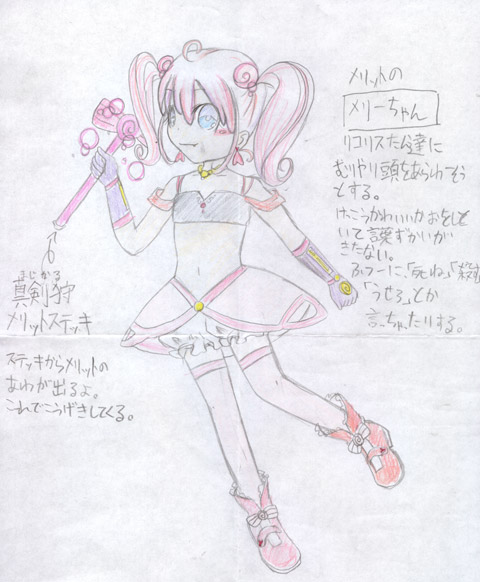 メリットの
メリーちゃん
リコリスたん達に
むりやり頭をあらわそう
とする。
けっこうかわいいカオをして
いて言葉づかいが
きたない。
ふつーに、「死ね」「殺す」
「うせろ」とか
言っちゃたりする。
まじかる
真剣狩
メリットステッキ
ステッキからメリットの
あわが出るよ。
これでこうげきしてくる。